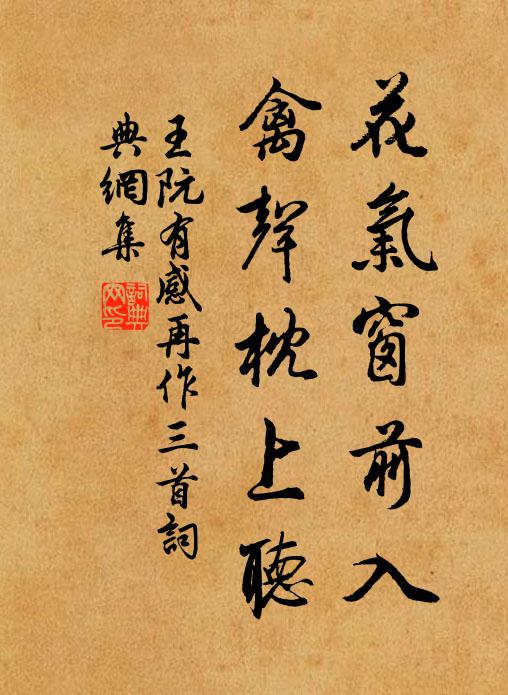 花氣窗前入
禽聲枕上聽
王阮有感再作三首詞
典網集
詞典
网印